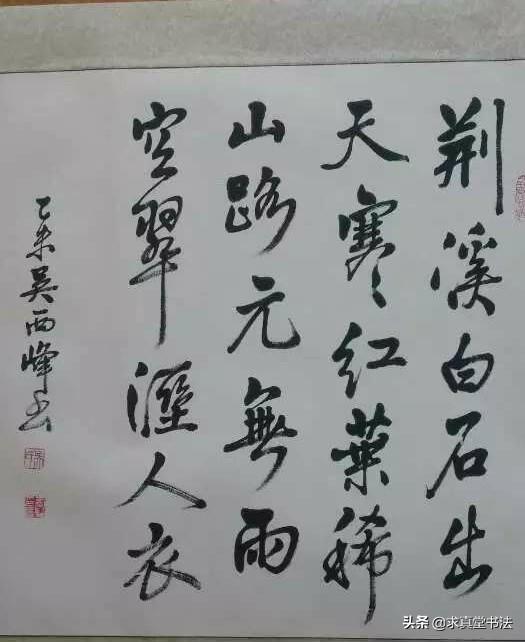 荆溪白石出
天寒红葉稀
山路元無雨
空翠溼人衣
乙未吴雨峰书
头条 @求真堂书法